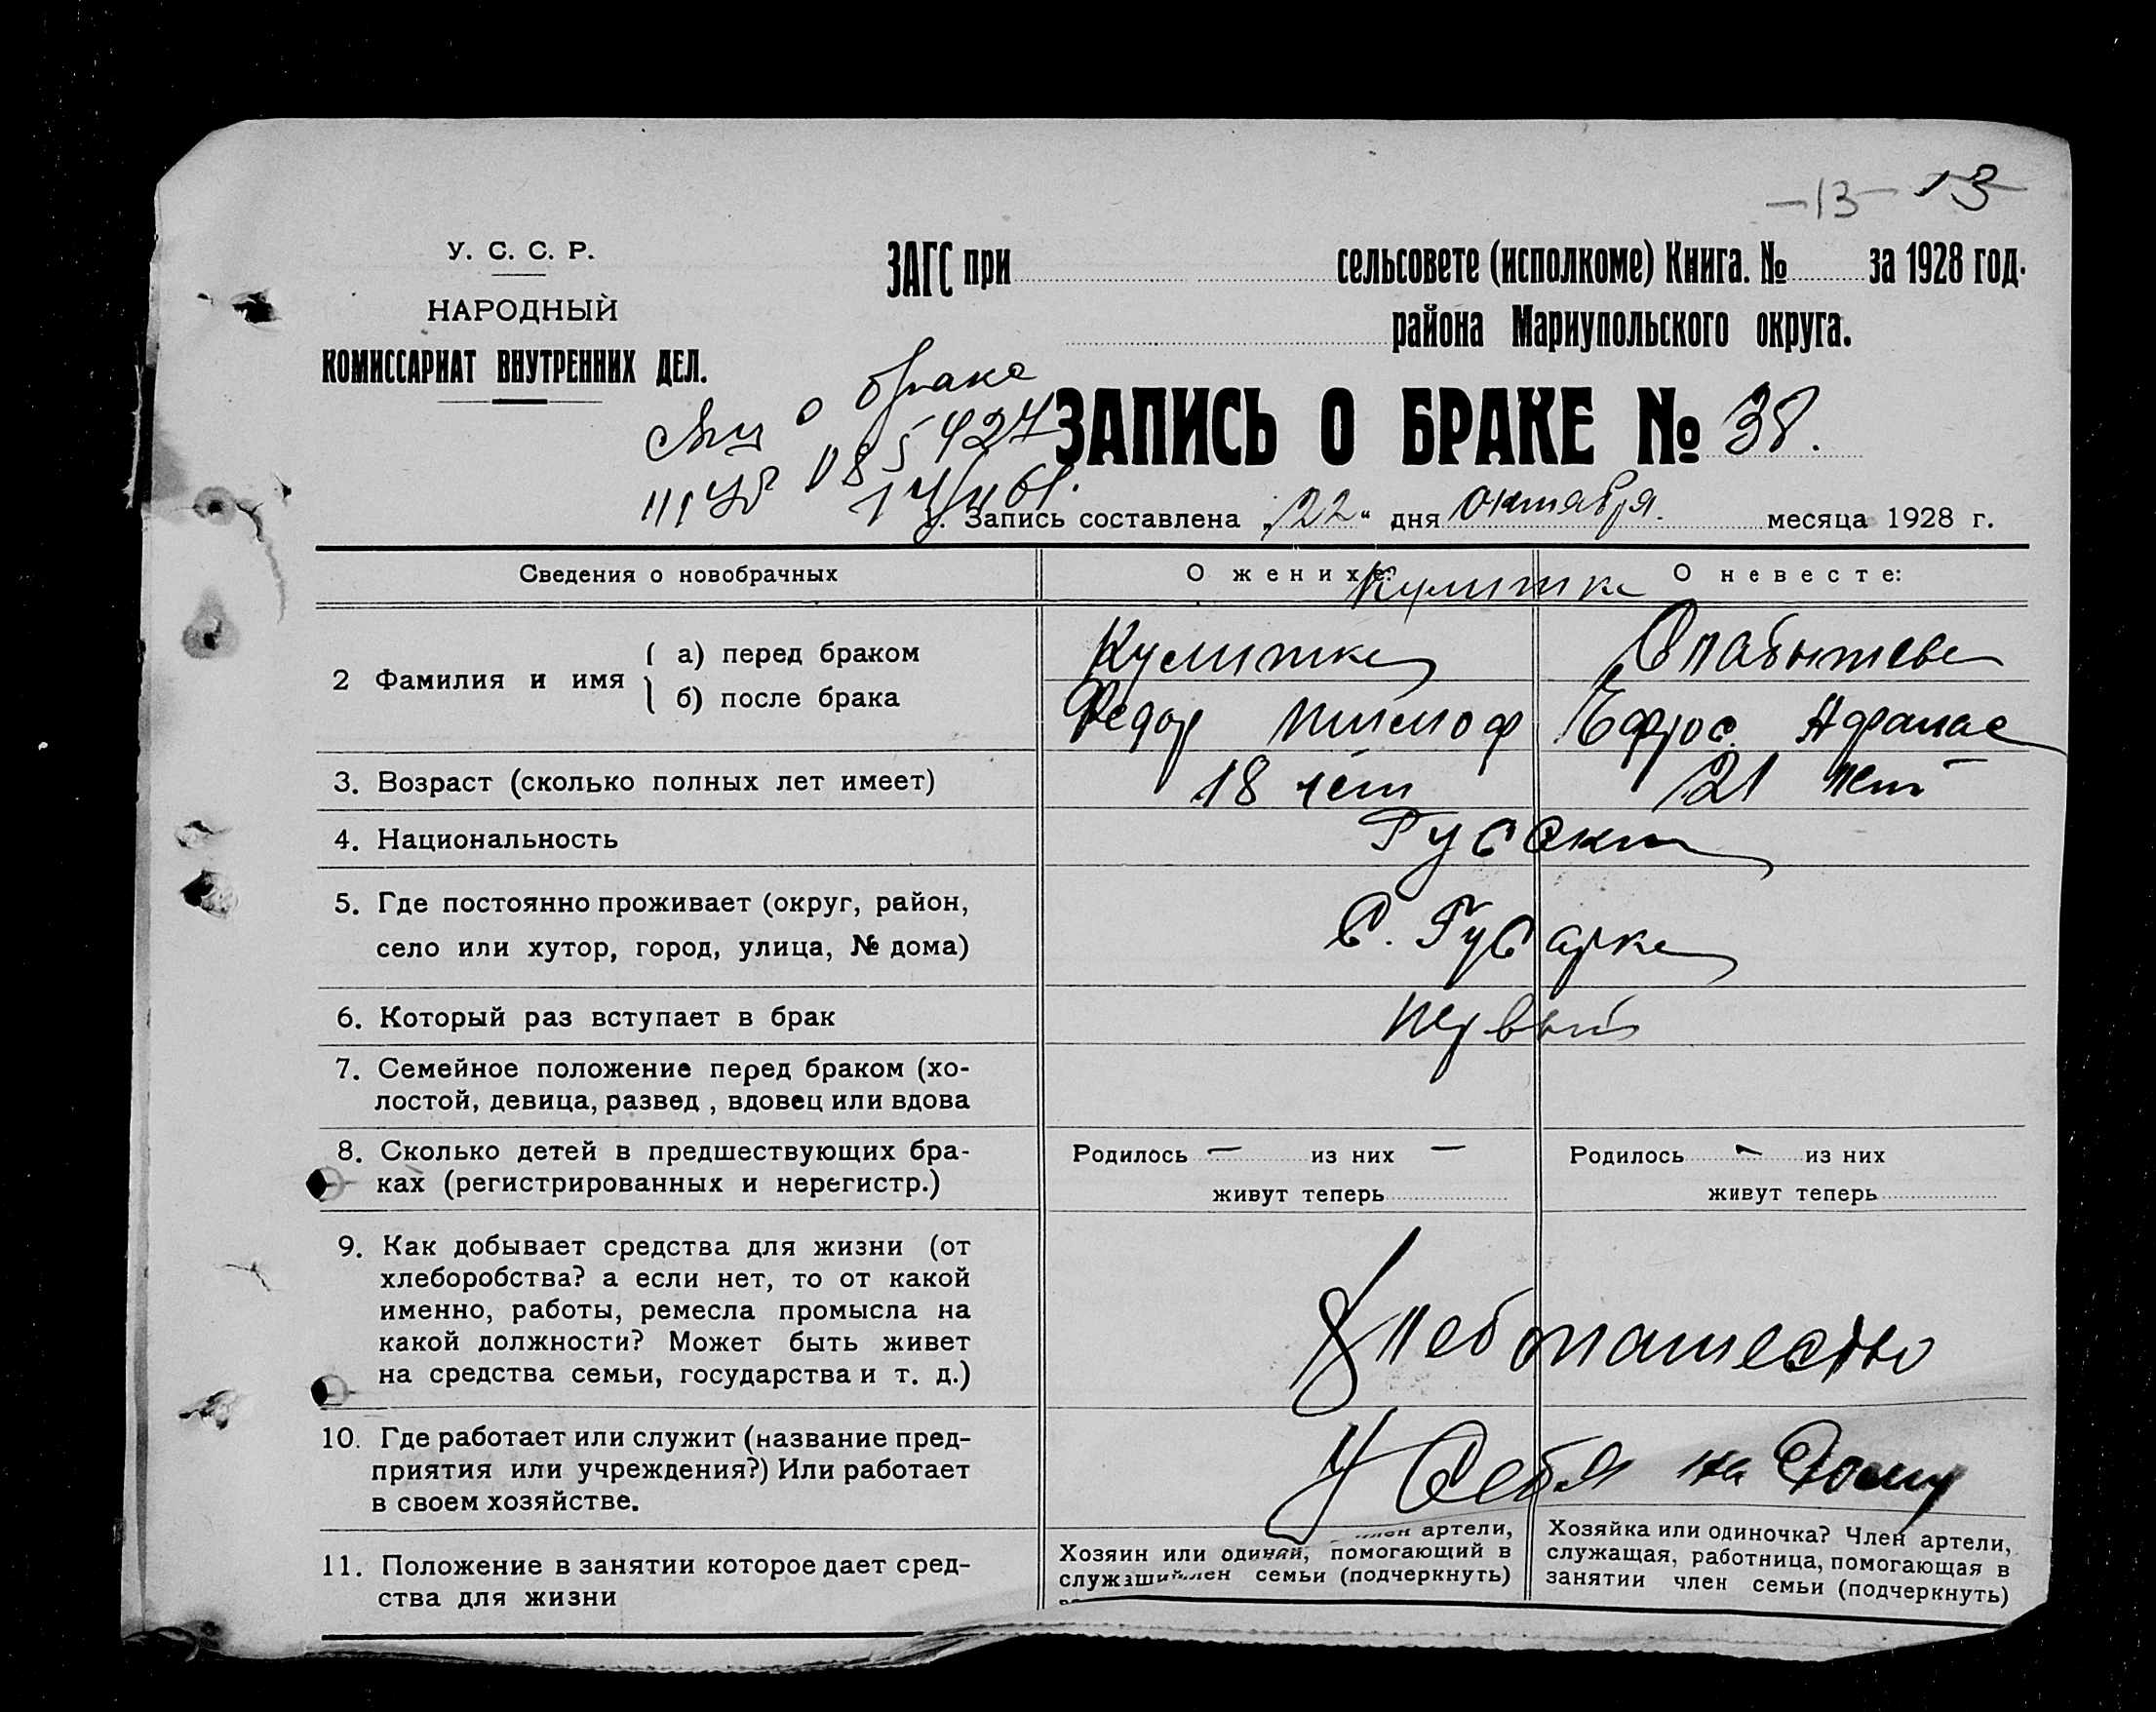 -13- 13
У. С. С. Р.
НАРОДНЫЙ
КОМИССАРИАТ ВНУТРЕННИХ ДЕЛ.
ЗАГС при сельсовете (исполкоме) Книга. № за 1928 год.
района Мариупольского округа.
о браке
ЗАПИСЬ О БРАКЕ № 38.
Запись составлена „22“ дня октября. месяца 1928 г.
Сведения о новобрачных
О женихе:
О невесте:
Кулитка
2 Фамилия и имя { а) перед браком
б) после брака
Кулитка
Федор
Слабышева
Ефрос. Афанас
3. Возраст (сколько полных лет имеет)
18 лет
21 лет
4. Национальность
Русские
5. Где постоянно проживает (округ, район,
село или хутор, город, улица, № дома)
С. Гусарка
6. Который раз вступает в брак
первый
7. Семейное положение перед браком (хо-
лостой, девица, развед , вдовец или вдова
8. Сколько детей в предшествующих бра-
ках (регистрированных и нерегистр.)
Родилось — из них —
живут теперь
Родилось — из них
живут теперь
9. Как добывает средства для жизни (от
хлеборобства? а если нет, то от какой
именно, работы, ремесла промысла на
какой должности? Может быть живет
на средства семьи, государства и т. д.)
Хлебопашество
10. Где работает или служит (название пред-
приятия или учреждения?) Или работает
в своем хозяйстве.
У себя на дому
11. Положение в занятии которое дает сред-
ства для жизни
артели,
Хозяин или одиночка, помогающий в
семьи (подчеркнуть)
Хозяйка или одиночка? Член артели,
служащая, работница, помогающая в
занятии член семьи (подчеркнуть)